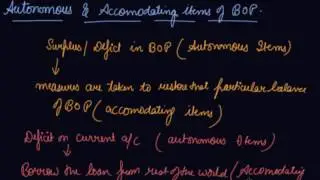 Autonomous & Accomodating items of BOP.
Surplus/ Deficit in BOP (Autonomous Items)
measures are taken to restore that particular balance
of BOP (accomodating items)
Deficit on current a/c (autonomous Items)
Borrow the loan from rest of the world (Accomodating